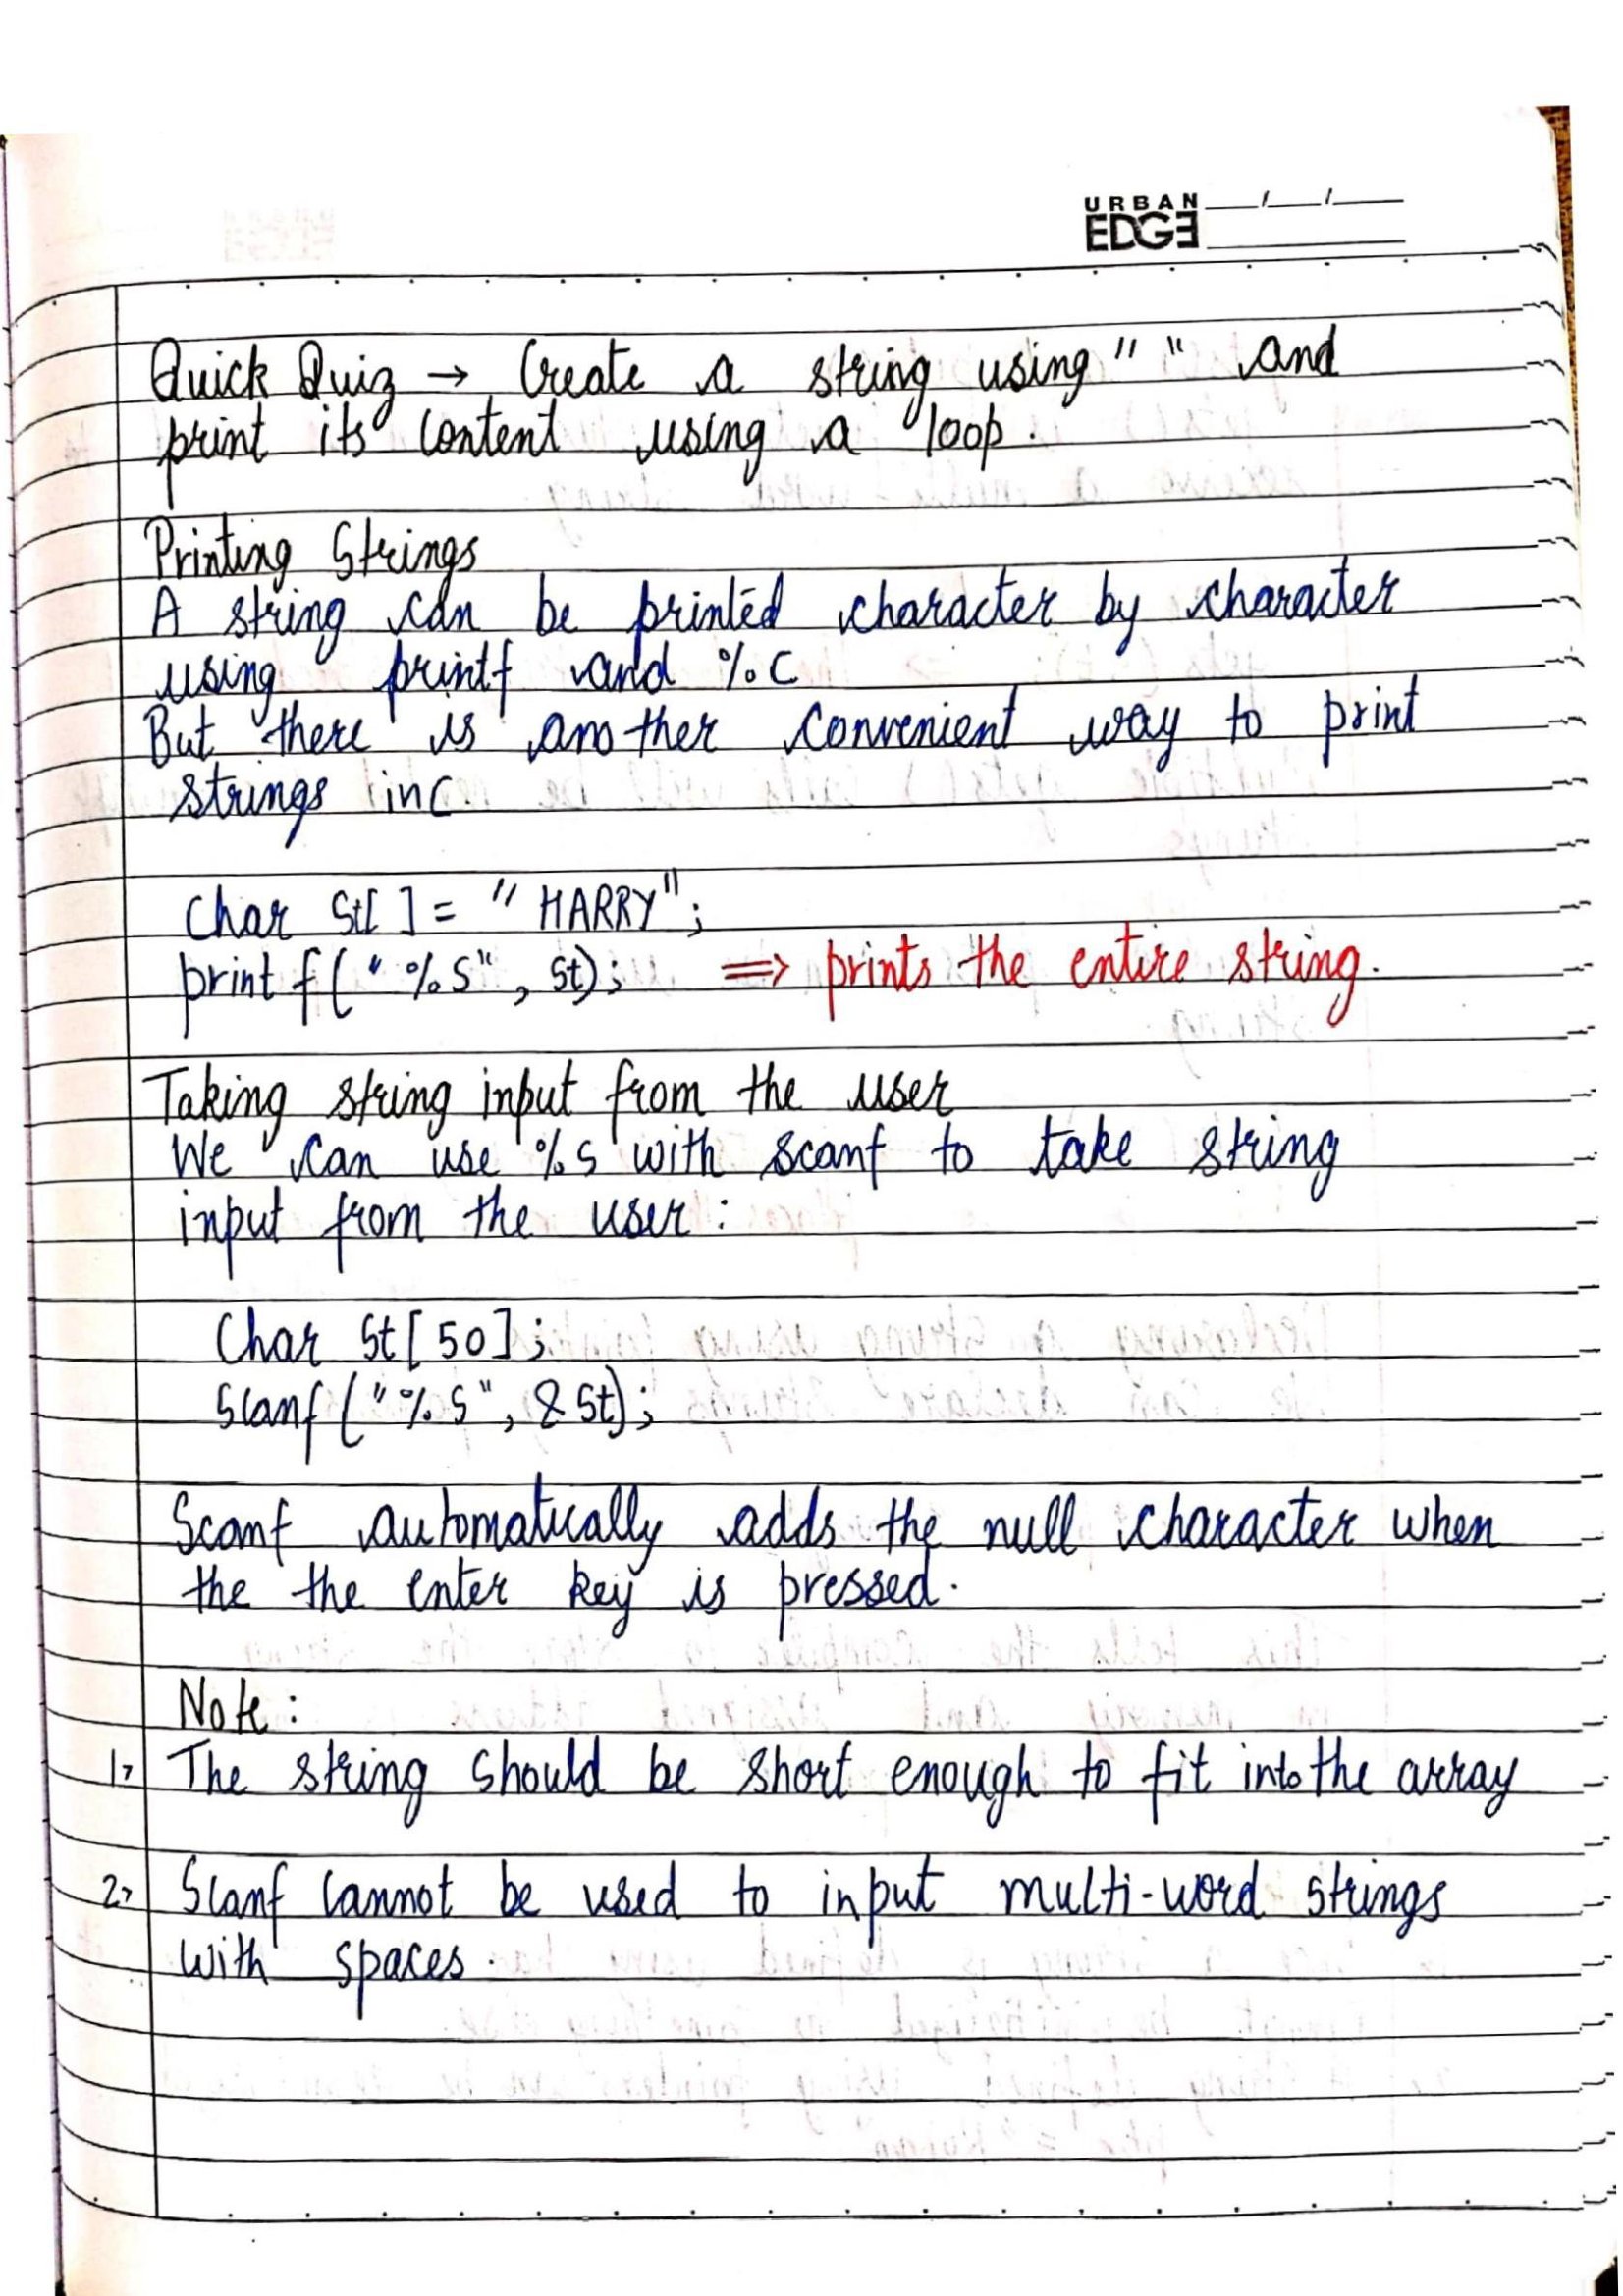 URBAN
EDGE
Quick Quiz → Create a string using " " and
print its content using a loop.
Printing Strings
A string can be printed character by character
using printf and %c
But there is another convenient way to print
strings in c
Char St[ ] = "HARRY";
printf("%s", St); ⇒ prints the entire string.
Taking string input from the user
We can use %s with scanf to take string
input from the user:
Char St[50];
Scanf("%s", &St);
Scanf automatically adds the null character when
the the enter key is pressed.
Note:
1> The string should be short enough to fit into the array
2> Scanf cannot be used to input multi-word strings
with spaces.